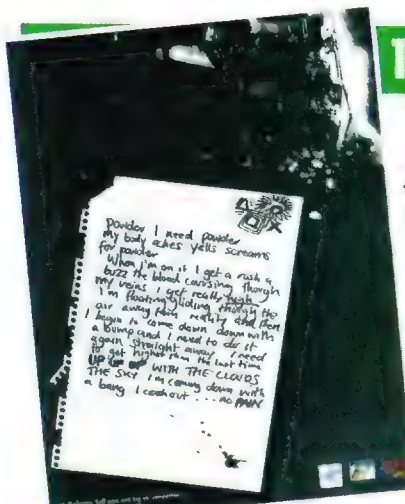 Powder I need powder
my body aches yells screams
for powder
When I'm on it I get a rush a
buzz the blood coursing though
my veins I get really high
I'm floating gliding though the
air away from reality and then
I begin to come down down with
a bump and I need to do it
again straight away I need
to get higher than the last time
UP UP UP WITH THE CLOUDS
THE SKY I'm coming down with
a bang I crash out ... no PAIN